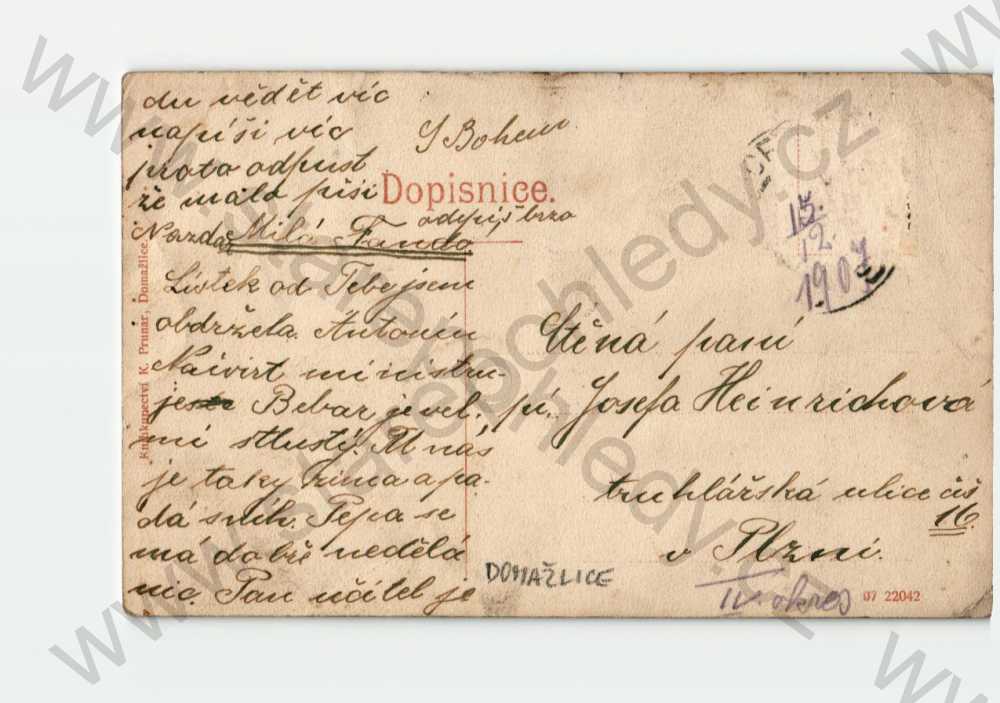 du vědět víc
napíši víc
proto odpust
že málo píši
S Bohem
Dopisnice.
odepiš brzo
Nazdar Milá Fando
Lístek od Tebe jsem
obdržela. Antonín
Naivirt ministru-
je Bebar je vel.
mi stlustý. U nás
je taky zima a pa-
dá sníh. Pepa se
má dobře nedělá
nic. Pan učitel je
Knihkupectví K. Prunar, Domažlice.
15.
12.
1907
Ctěná paní
pí. Josefa Heinrichová
truhlářská ulice čís
16.
v Plzni.
IV. okres
DOMAŽLICE
07 22042
www.starepohledy.cz